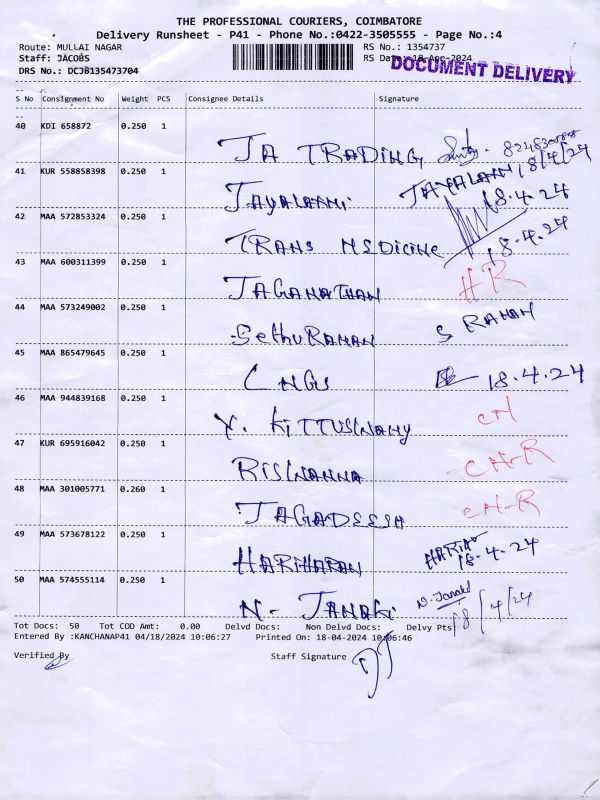 THE PROFESSIONAL COURIERS, COIMBATORE
Delivery Runsheet - P41 - Phone No.:0422-3505555 - Page No.:4
Route: MULLAI NAGAR
RS No.: 1354737
Staff: JACOBS
RS Date: 18-Apr-2024
DRS No.: DCJB135473704
DOCUMENT DELIVERY
S No Consignment No Weight PCS Consignee Details Signature
40 KDI 658872 0.250 1
JA TRADING 18/4/24
41 KUR 558858398 0.250 1
Jayalaxmi JAYALAXMI 18.4.24
42 MAA 572853324 0.250 1
TRANS MEDICINE 18.4.24
43 MAA 600311399 0.250 1
JAGANATHAN HR
44 MAA 573249002 0.250 1
SethuRAMAN S RAMAN
45 MAA 865479645 0.250 1
LNGS 18.4.24
46 MAA 944839168 0.250 1
KITTUSWAMY
47 KUR 695916042 0.250 1
RISWANNA CH-R
48 MAA 301005771 0.260 1
JAGADEESH CH-R
49 MAA 573678122 0.250 1
HARIHARAN 18.4.24
50 MAA 574555114 0.250 1
N- JANAKI N. Janaki 18/4/24
Tot Docs: 50 Tot COD Amt: 0.00 Delvd Docs: Non Delvd Docs: Delvy Pts:
Entered By :KANCHANAP41 04/18/2024 10:06:27 Printed On: 18-04-2024 10:06:46
Verified By Staff Signature